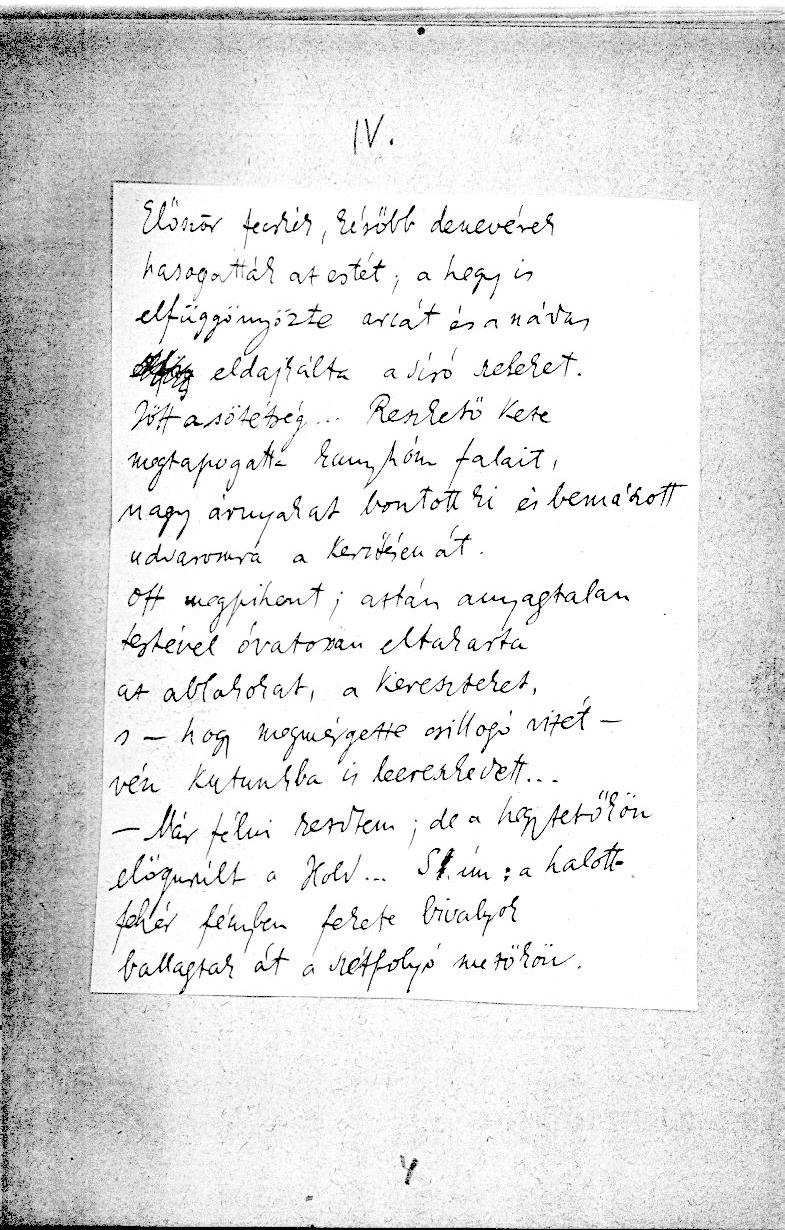 IV.
Először fecskék, később denevérek
hasogatták az estét; a hegy is
elfüggönyözte arcát és a nádas
eldajkálta a síró szeleket.
Jött a sötétség... Reszkető keze
megtapogatta kunyhóm falait,
nagy árnyakat bontott ki és bemászott
udvaromra a kerítésen át.
Ott megpihent; aztán anyagtalan
testével óvatosan eltakarta
az ablakokat, a kereszteket,
s – hogy megmérgezze csillogó vizét –
vén kutunkba is leereszkedett...
– Már félni kezdtem; de a hegytetőkön
előgurült a Hold... S ím: a halott-
fehér fényben fekete bivalyok
ballagtak át a szétfolyó mezőkön.
4